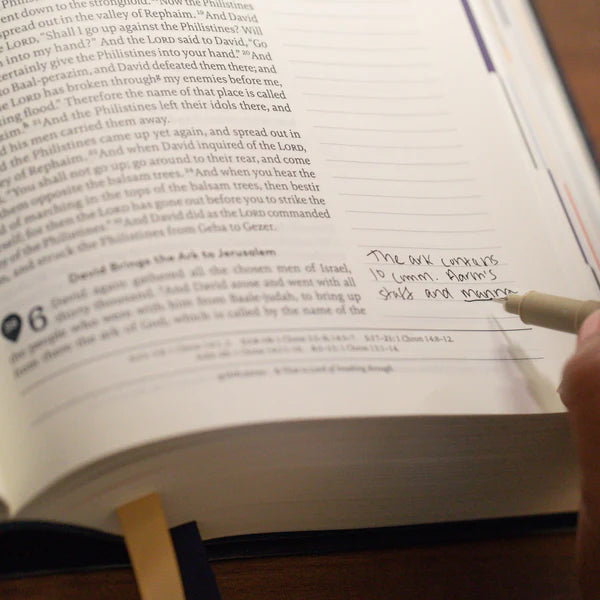 went down to the stronghold. Now the Philistines
spread out in the valley of Rephaim. ¹⁹And David
LORD, "Shall I go up against the Philistines? Will
into my hand?" And the LORD said to David, "Go
certainly give the Philistines into your hand." ²⁰And
to Baal-perazim, and David defeated them there; and
e LORD has broken through my enemies before me,
ing flood." Therefore the name of that place is called
zim. ²¹And the Philistines left their idols there, and
d his men carried them away.
d the Philistines came up yet again, and spread out in
ey of Rephaim. ²³And when David inquired of the LORD,
"You shall not go up; go around to their rear, and come
them opposite the balsam trees. ²⁴And when you hear the
d of marching in the tops of the balsam trees, then bestir
self, for then the LORD has gone out before you to strike the
y of the Philistines." ²⁵And David did as the LORD commanded
m, and struck the Philistines from Geba to Gezer.
David Brings the Ark to Jerusalem
6 David again gathered all the chosen men of Israel,
thirty thousand. ²And David arose and went with all
the people who were with him from Baale-judah, to bring up
from there the ark of God, which is called by the name of the
The ark contains
10 comm. Aarn's
staff and manna